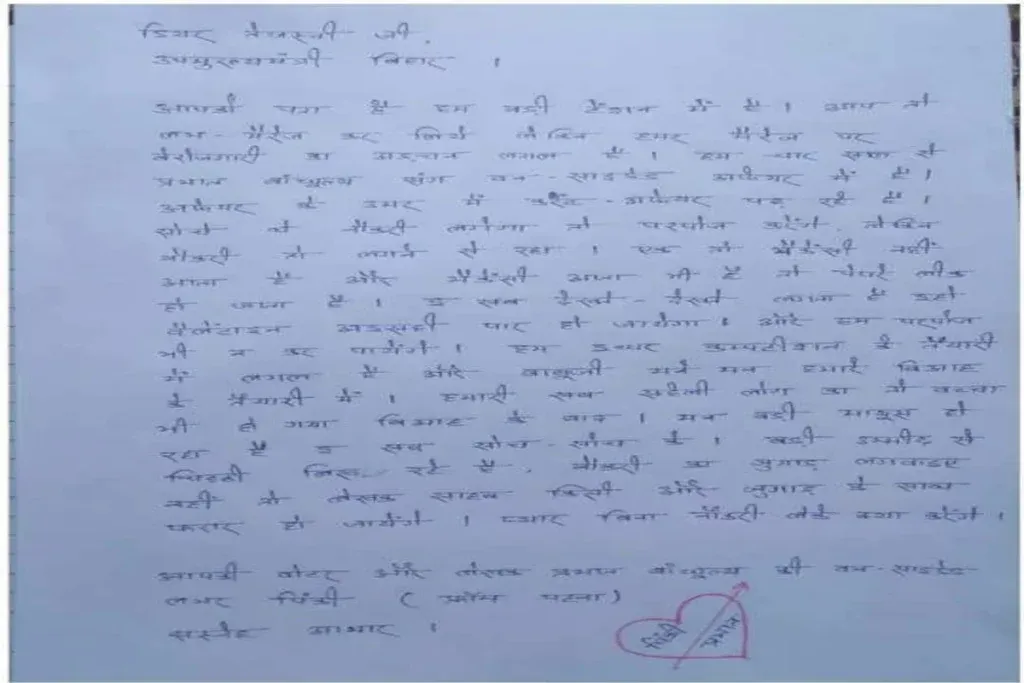 डियर तेजस्वी जी,
उपमुख्यमंत्री बिहार ।
आपको पता है हम बड़ी टेंशन में है । आप तो
लभ-मैरेज कर लिये लेकिन हमर मैरेज पर
बेरोजगारी का अड़चन लगल है । हम चार साल से
प्रभात बाँधुल्य संग वन-साइडेड अफेयर में हैं ।
अफेयर के उमर में करेंट-अफेयर पढ़ रहे हैं ।
सोचे थे नौकरी लगेगा तो परपोज करेंगे, लेकिन
नौकरी तो लगने से रहा । एक तो भैकेंसी नहीं
आता है और भैकेंसी आता भी है तो पेपरे लीक
हो जाता है । इ सब देखते-देखते लगता है इहो
वैलेंटाइन अइसही पार हो जायेगा । और हम परपोज
भी न कर पायेंगे । हम इध्धर कम्पटीशन के तैयारी
में लगल है और बाबूजी मने मन हमारे बिआह
के तैयारी में । हमारी सब सहेली लोग का तो बच्चा
भी हो गया बिआह के बाद । मन बड़ी मायूस हो
रहा है इ सब सोच-सोच के । बड़ी उम्मीद से
चिट्ठी लिख रहे हैं, नौकरी का जुगाड़ लगवाइए
नहीं तो लेखक साहब किसी और जुगाड़ के साथ
फरार हो जायेंगे । प्यार बिना नौकरी लेके क्या करेंगे ।
आपकी वोटर और लेखक प्रभात बाँधुल्य की वन-साइडेड
लभर पिंकी ( फ्रॉम पटना)
सस्नेह आभार ।
पिंकी प्रभात